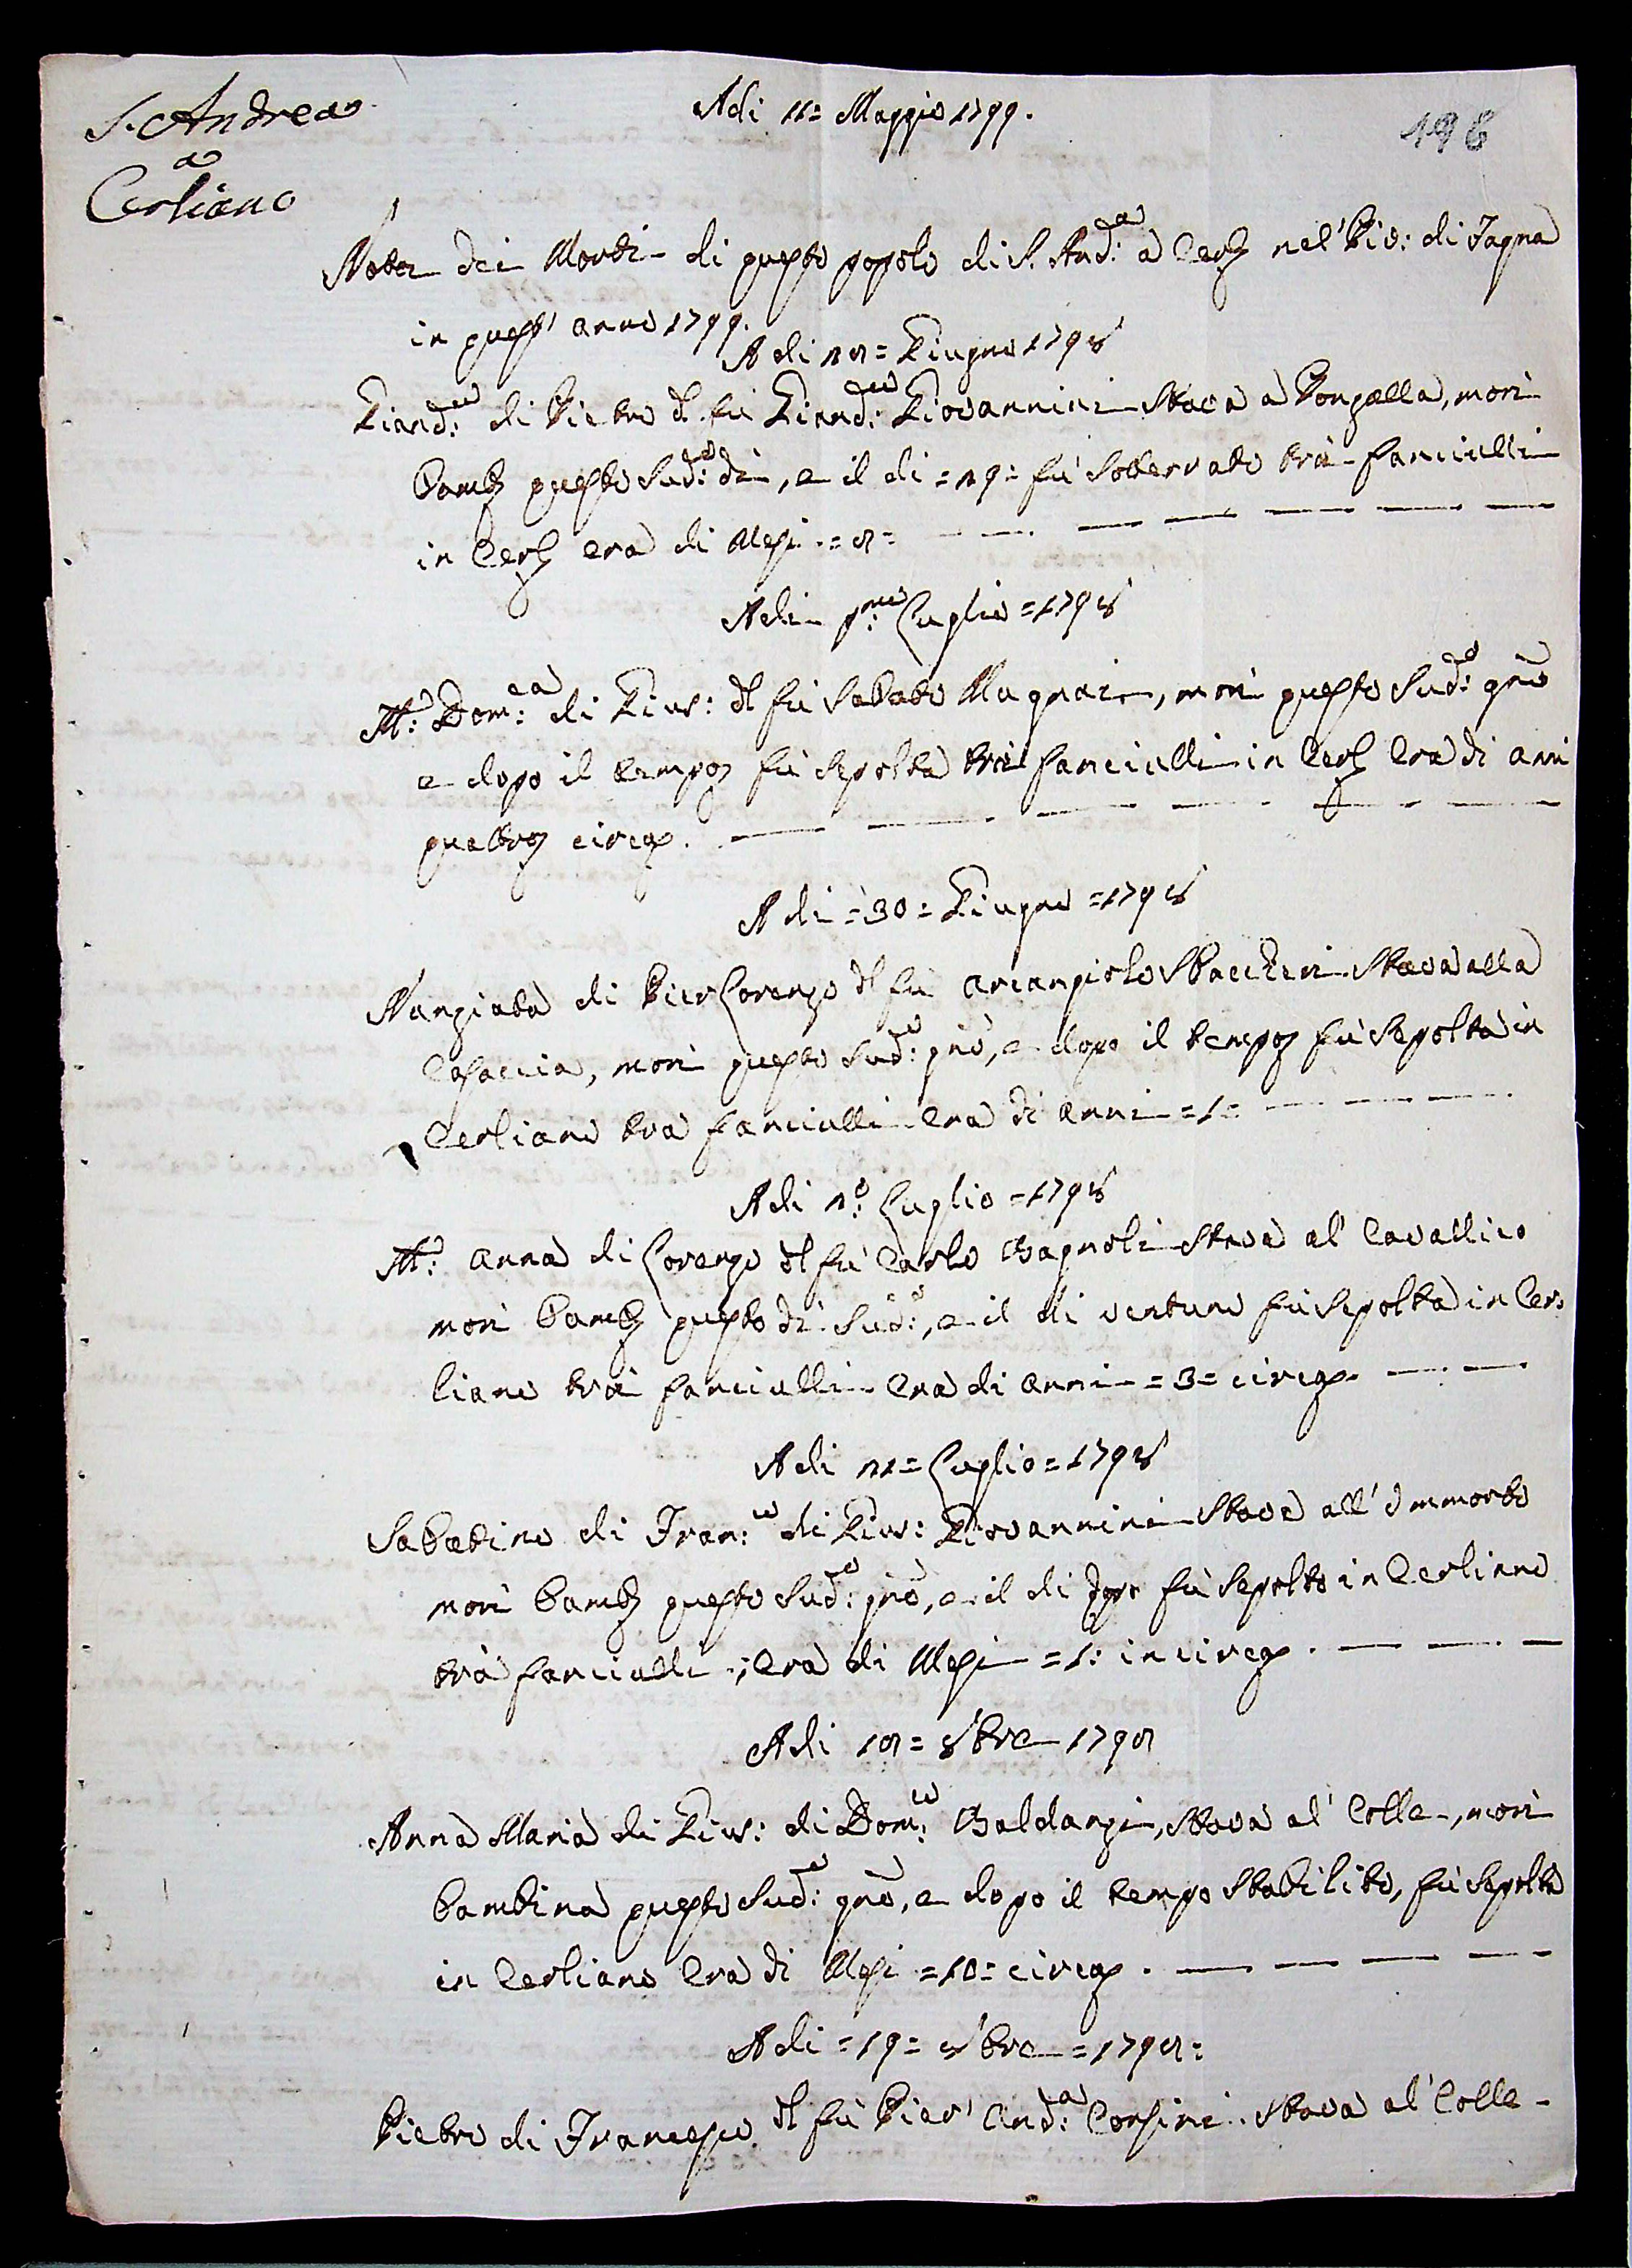 S. Andrea
a
Cerliano
Adi 11= Maggio 1799.
198
Nota dei Morti di questo popolo di S. And:ª a Cerl nel' Vic: di Fagna
in quest' anno 1799.
A di 28= Giugno 1798
Giand:co di Pietro d fù Giand:co Giovannini Stava a Ponzalla, morì
Bamb questo Sud:o dì, e il di =29= fù Sotterrato trà fanciulli
in Cerl era di Mesi =8=
Adi pmo: Luglio =1798
Mª: Dom:ca di Gius: d fù Sabato Mugnai, morì questo Sud:o gno
e dopo il tempo fù Sepolta trà fanciulli in Cerl Era di anni
quattro circa.
A di =30= Giugno =1798
Nunziata di Pier Lorenzo d fù Arcangiolo Staccini Stava alla
Casaccia, morì questo Sud:o gno, e dopo il tempo fù Sepolta in
Cerliano tra fanciulli Era di anni =1=
Adi 2º: Luglio =1798
Mª: Anna di Lorenzo d fù Carlo Bagnoli Stava al' Cavallico
morì Bamb questo dì Sud:o, e il di venturo fù Sepolta in Cer:
liano trà fanciulli Era di anni =3= circa.
Adi 21= Luglio =1798
Sabatino di Fran:co di Gius: Giovannini Stava all' Ommorto
morì Bamb questo Sud:o gno, e il di dopo fù Sepolto in Cerliano
trà fanciulli, Era di Mesi =1: in circa.
Adi 18= 8bre 1798
Anna Maria di Gius: di Dom:co Baldanzi, Stava al' Colle, morì
bambina questo Sud:o gno, e dopo il tempo Stabilito, fù Sepolta
in Cerliano Era di Mesi =10= circa.
A di =19= 8bre =1798:
Pietro di Francesco d fù Pier' And:ª Corsini Stava al' Colle